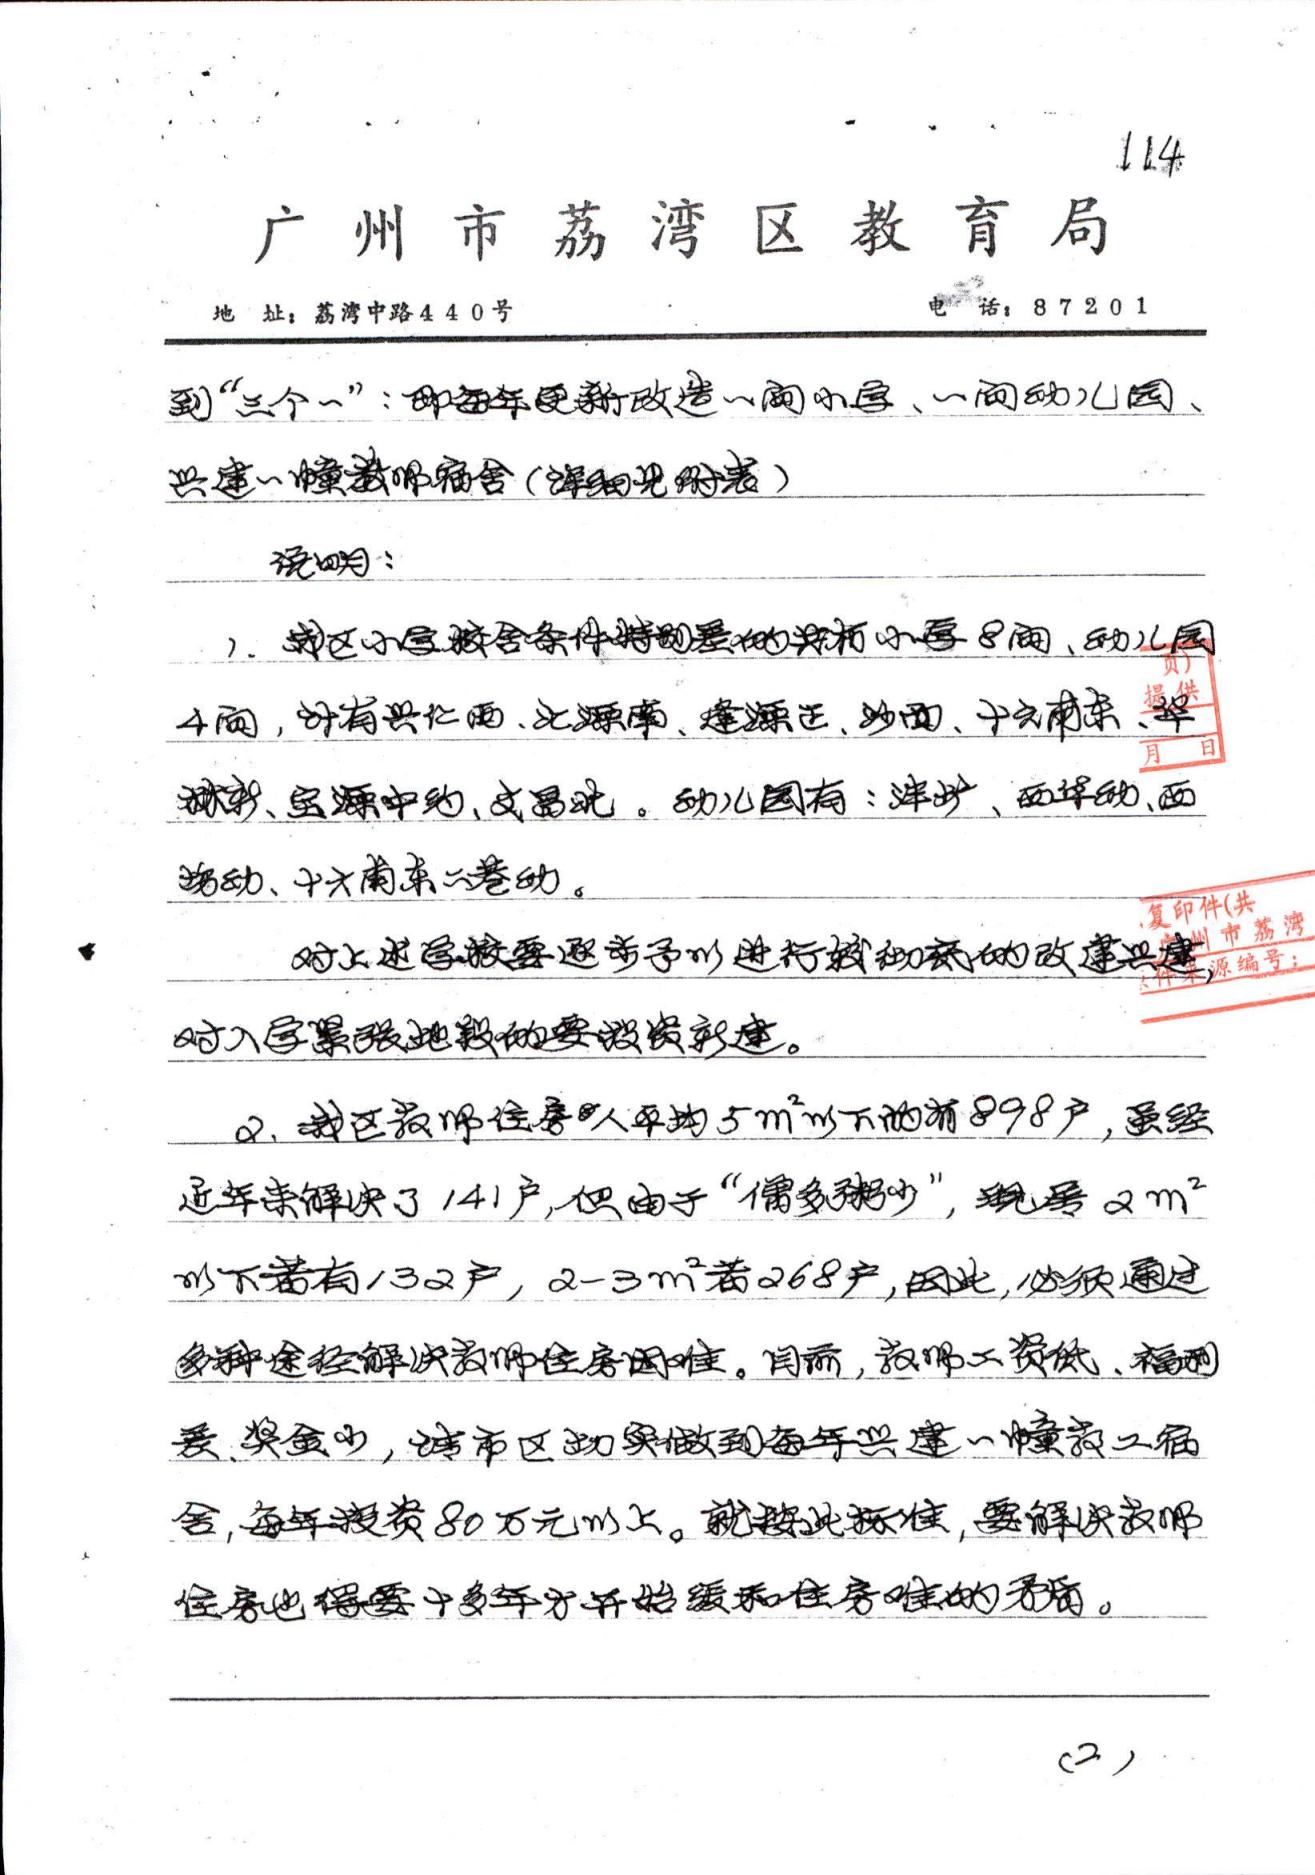 114
广州市荔湾区教育局
地 址：荔湾中路440号 电 话：87201
到“三个一”：即每年更新改造一间小学、一间幼儿园、
兴建一幢教师宿舍（详细见附表）
说明：
1. 我区小学校舍条件特别差的共有小学8间、幼儿园
4间，计有兴仁西、北源南、逢源正、沙面、十六甫东、华
林新、宝源中约、文昌北。幼儿园有：洋沙、西华幼、西
场幼、十六甫东六巷幼。
对上述学校要逐步予以进行较彻底的改建兴建，
对入学紧张地段的要投资新建。
2. 我区教师住房人平均5m²以下的有898户，虽经
近年来解决了141户，但由于“僧多粥少”，现属2m²
以下者有132户，2-3m²者268户，因此，必须通过
多种途径解决教师住房困难。目前，教师工资低、福利
差、奖金少，请市区切实做到每年兴建一幢教工宿
舍，每年投资80万元以上。就按此标准，要解决教师
住房也得要十多年才开始缓和住房难的矛盾。
页）
提供
月 日
复印件(共
广州市荔湾
件来源编号：
(2)